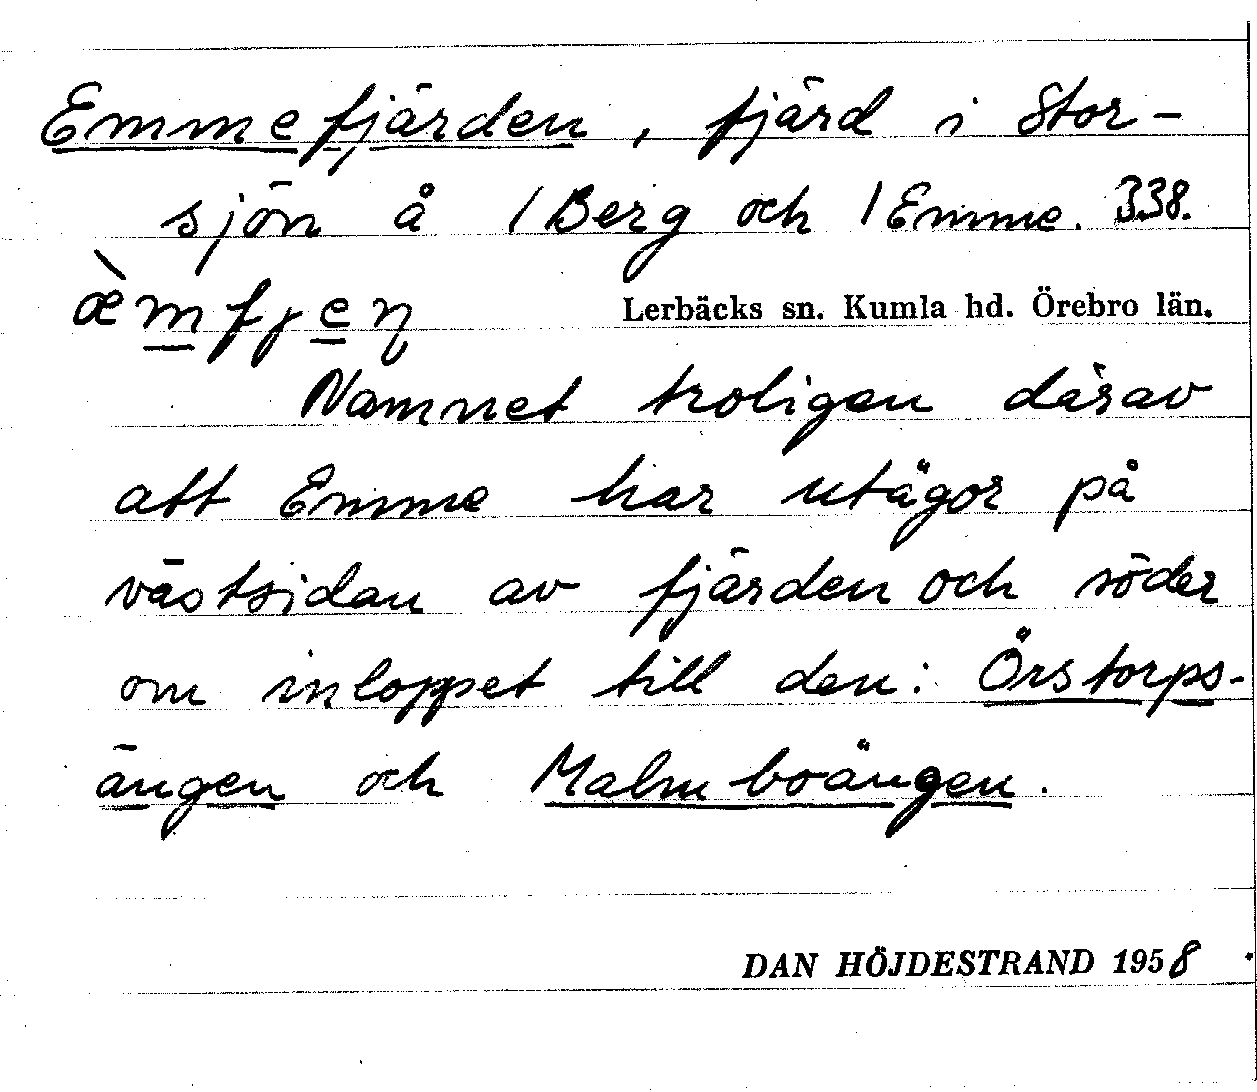 Emmefjärden, fjärd i Stor-
sjön å /Berg och /Emme. 338.
æ̀mfjen
Lerbäcks sn. Kumla hd. Örebro län.
Namnet troligen därav
att Emme har utägor på
västsidan av fjärden och söder
om inloppet till den: Örstorps-
ängen och Malmboängen.
DAN HÖJDESTRAND 1958